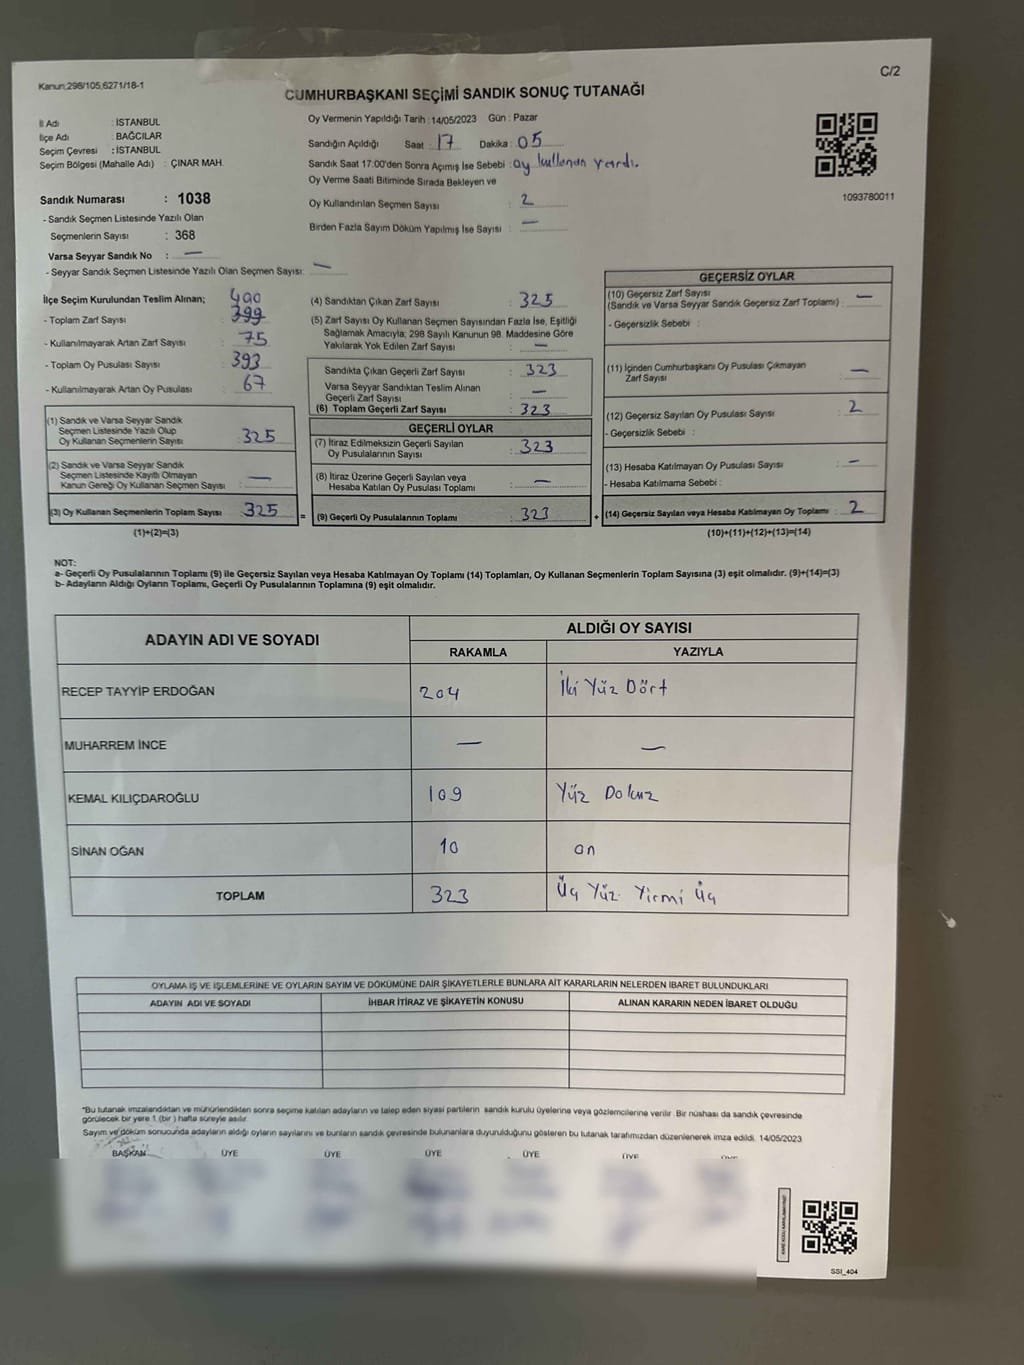 Kanun;298/105,6271/18-1
C/2
CUMHURBAŞKANI SEÇİMİ SANDIK SONUÇ TUTANAĞI
İl Adı : İSTANBUL
İlçe Adı : BAĞCILAR
Seçim Çevresi : İSTANBUL
Seçim Bölgesi (Mahalle Adı) : ÇINAR MAH.
Sandık Numarası : 1038
- Sandık Seçmen Listesinde Yazılı Olan
Seçmenlerin Sayısı : 368
Varsa Seyyar Sandık No : —
- Seyyar Sandık Seçmen Listesinde Yazılı Olan Seçmen Sayısı: —
Oy Vermenin Yapıldığı Tarih : 14/05/2023 Gün : Pazar
Sandığın Açıldığı Saat : 17 Dakika : 05
Sandık Saat 17:00'den Sonra Açımış İse Sebebi : oy kullanan vardı.
Oy Verme Saati Bitiminde Sırada Bekleyen ve
Oy Kullandırılan Seçmen Sayısı : 2
Birden Fazla Sayım Döküm Yapılmış İse Sayısı : —
1093780011
İlçe Seçim Kurulundan Teslim Alınan; 400
- Toplam Zarf Sayısı : 399
- Kullanılmayarak Artan Zarf Sayısı : 75
- Toplam Oy Pusulası Sayısı : 393
- Kullanılmayarak Artan Oy Pusulası : 67
(1) Sandık ve Varsa Seyyar Sandık
Seçmen Listesinde Yazılı Olup
Oy Kullanan Seçmenlerin Sayısı : 325
(2) Sandık ve Varsa Seyyar Sandık
Seçmen Listesinde Kayıtlı Olmayan
Kanun Gereği Oy Kullanan Seçmen Sayısı : —
(3) Oy Kullanan Seçmenlerin Toplam Sayısı : 325
(1)+(2)=(3)
(4) Sandıktan Çıkan Zarf Sayısı : 325
(5) Zarf Sayısı Oy Kullanan Seçmen Sayısından Fazla İse, Eşitliği
Sağlamak Amacıyla; 298 Sayılı Kanunun 98. Maddesine Göre
Yakılarak Yok Edilen Zarf Sayısı : —
Sandıkta Çıkan Geçerli Zarf Sayısı : 323
Varsa Seyyar Sandıktan Teslim Alınan
Geçerli Zarf Sayısı : —
(6) Toplam Geçerli Zarf Sayısı : 323
GEÇERLİ OYLAR
(7) İtiraz Edilmeksizin Geçerli Sayılan
Oy Pusulalarının Sayısı : 323
(8) İtiraz Üzerine Geçerli Sayılan veya
Hesaba Katılan Oy Pusulası Toplamı : —
= (9) Geçerli Oy Pusulalarının Toplamı : 323
GEÇERSİZ OYLAR
(10) Geçersiz Zarf Sayısı
(Sandık ve Varsa Seyyar Sandık Geçersiz Zarf Toplamı) : —
- Geçersizlik Sebebi :
(11) İçinden Cumhurbaşkanı Oy Pusulası Çıkmayan
Zarf Sayısı : —
(12) Geçersiz Sayılan Oy Pusulası Sayısı : 2
- Geçersizlik Sebebi :
(13) Hesaba Katılmayan Oy Pusulası Sayısı : —
- Hesaba Katılmama Sebebi :
+ (14) Geçersiz Sayılan veya Hesaba Katılmayan Oy Toplamı : 2
(10)+(11)+(12)+(13)=(14)
NOT:
a- Geçerli Oy Pusulalarının Toplamı (9) ile Geçersiz Sayılan veya Hesaba Katılmayan Oy Toplamı (14) Toplamları, Oy Kullanan Seçmenlerin Toplam Sayısına (3) eşit olmalıdır. (9)+(14)=(3)
b- Adayların Aldığı Oyların Toplamı, Geçerli Oy Pusulalarının Toplamına (9) eşit olmalıdır.
ADAYIN ADI VE SOYADI
ALDIĞI OY SAYISI
RAKAMLA YAZIYLA
RECEP TAYYİP ERDOĞAN 204 İki Yüz Dört
MUHARREM İNCE — —
KEMAL KILIÇDAROĞLU 109 Yüz Dokuz
SİNAN OĞAN 10 on
TOPLAM 323 Üç Yüz Yirmi Üç
OYLAMA İŞ VE İŞLEMLERİNE VE OYLARIN SAYIM VE DÖKÜMÜNE DAİR ŞİKAYETLERLE BUNLARA AİT KARARLARIN NELERDEN İBARET BULUNDUKLARI
ADAYIN ADI VE SOYADI İHBAR İTİRAZ VE ŞİKAYETİN KONUSU ALINAN KARARIN NEDEN İBARET OLDUĞU
*Bu tutanak imzalandıktan ve mühürlendikten sonra seçime katılan adayların ve talep eden siyasi partilerin sandık kurulu üyelerine veya gözlemcilerine verilir. Bir nüshası da sandık çevresinde
görülecek bir yere 1 (bir) hafta süreyle asılır.
Sayım ve döküm sonucunda adayların aldığı oyların sayılarını ve bunların sandık çevresinde bulunanlara duyurulduğunu gösteren bu tutanak tarafımızdan düzenlenerek imza edildi. 14/05/2023
BAŞKAN ÜYE ÜYE ÜYE ÜYE ÜYE
SSI_404